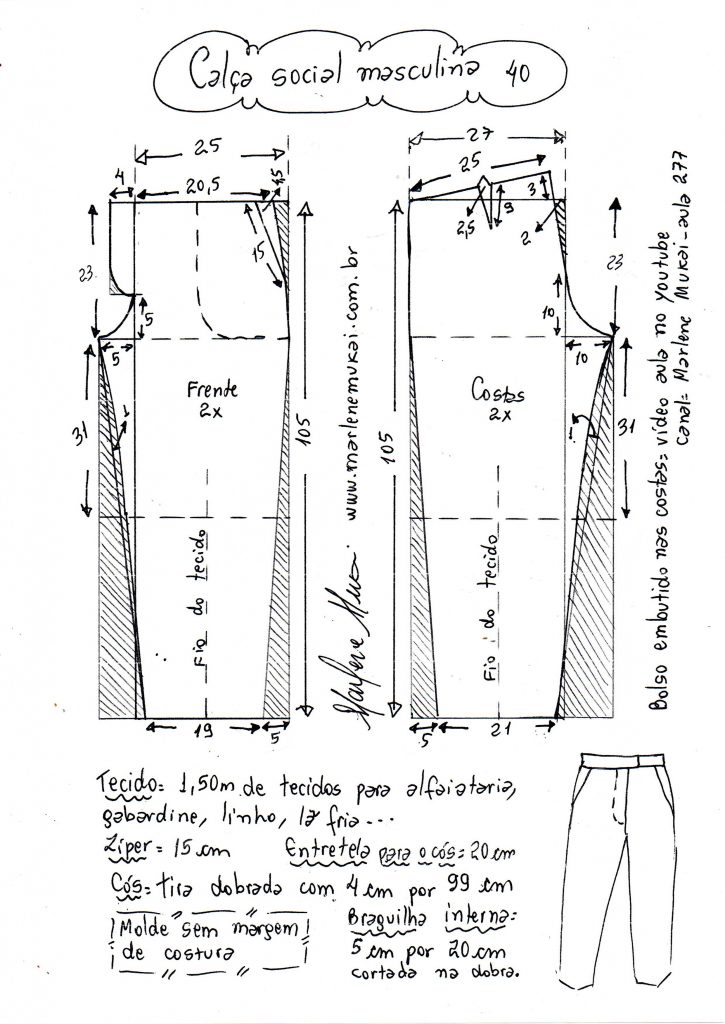 Calça social masculina 40
25
4
20,5
4,5
15
23
5
5
31
1
Frente
2x
105
Fio do tecido
19
5
www.marlenemukai.com.br
27
25
3
9
2,5
2
23
10
10
31
1
Costas
2x
105
Fio do tecido
5
21
Bolso embutido nas costas= vídeo aula no youtube
canal= Marlene Mukai-aula 277
Tecido= 1,50m de tecidos para alfaiataria,
gabardine, linho, lã fria...
Zíper= 15 cm
Entretela para o cós= 20 cm
Cós= tira dobrada com 4 cm por 99 cm
Molde sem margem
de costura
Braguilha interna=
5 cm por 20 cm
cortada na dobra.